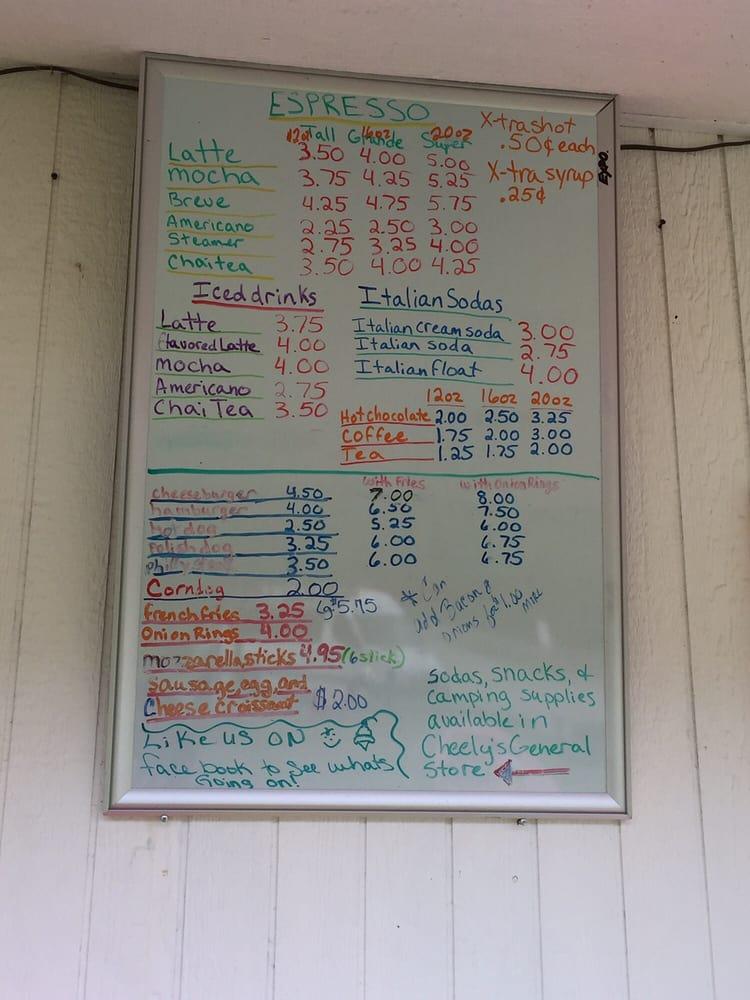 ESPRESSO
X-tra shot
.50¢ each
X-tra syrup
.25¢
EXPO.
12oz Tall 16oz Grande 20oz Super
Latte 3.50 4.00 5.00
mocha 3.75 4.25 5.25
Breve 4.25 4.75 5.75
Americano 2.25 2.50 3.00
Steamer 2.75 3.25 4.00
Chai tea 3.50 4.00 4.25
Iced drinks
Latte 3.75
flavored Latte 4.00
Mocha 4.00
Americano 2.75
Chai Tea 3.50
Italian Sodas
Italian Cream soda 3.00
Italian soda 2.75
Italian float 4.00
12oz 16oz 20oz
Hot chocolate 2.00 2.50 3.25
Coffee 1.75 2.00 3.00
Tea 1.25 1.75 2.00
with Fries with Onion Rings
cheeseburger 4.50 7.00 8.00
hamburger 4.00 6.50 7.50
Hot dog 2.50 5.25 6.00
polish dog 3.25 6.00 6.75
philly 3.50 6.00 6.75
Corndog 2.00
french fries 3.25 lg $5.75
Onion Rings 4.00
mozzarella sticks 4.95 (6 stick)
sausage, egg, and
Cheese Croissant $2.00
* Can
add Bacon &
onions for $1.00
more
Like us on
face book to see whats
Going on!
Sodas, snacks, &
camping supplies
available in
Cheely's General
Store